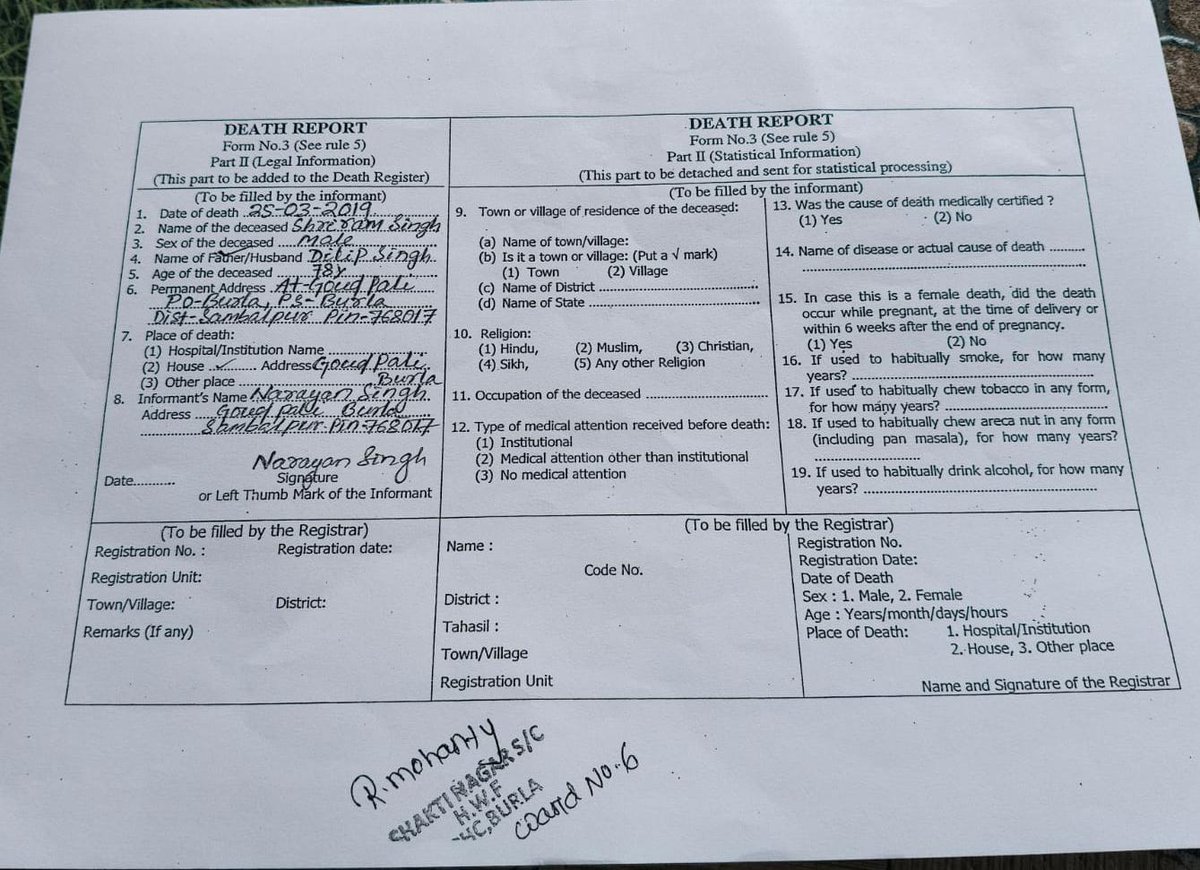 DEATH REPORT
Form No.3 (See rule 5)
Part II (Legal Information)
(This part to be added to the Death Register)
(To be filled by the informant)
1. Date of death 25-03-2019
2. Name of the deceased Shriram Singh
3. Sex of the deceased Male
4. Name of Father/Husband Dilip Singh
5. Age of the deceased 78Y
6. Permanent Address At-Goud Pali
Po-Burla, PS-Burla
Dist-Sambalpur Pin-768017
7. Place of death:
(1) Hospital/Institution Name
(2) House ✓ Address Goud Pali
(3) Other place Burla
8. Informant's Name Narayan Singh
Address Goud Pali Burla
Sambalpur Pin-768017
Narayan Singh
Date.......... Signature
or Left Thumb Mark of the Informant
(To be filled by the Registrar)
Registration No. : Registration date:
Registration Unit:
Town/Village: District:
Remarks (If any)
DEATH REPORT
Form No.3 (See rule 5)
Part II (Statistical Information)
(This part to be detached and sent for statistical processing)
(To be filled by the informant)
9. Town or village of residence of the deceased:
(a) Name of town/village:
(b) Is it a town or village: (Put a √ mark)
(1) Town (2) Village
(c) Name of District
(d) Name of State
10. Religion:
(1) Hindu, (2) Muslim, (3) Christian,
(4) Sikh, (5) Any other Religion
11. Occupation of the deceased
12. Type of medical attention received before death:
(1) Institutional
(2) Medical attention other than institutional
(3) No medical attention
13. Was the cause of death medically certified ?
(1) Yes (2) No
14. Name of disease or actual cause of death
15. In case this is a female death, did the death
occur while pregnant, at the time of delivery or
within 6 weeks after the end of pregnancy.
(1) Yes (2) No
16. If used to habitually smoke, for how many
years?
17. If used to habitually chew tobacco in any form,
for how many years?
18. If used to habitually chew areca nut in any form
(including pan masala), for how many years?
19. If used to habitually drink alcohol, for how many
years?
(To be filled by the Registrar)
Name :
Code No.
District :
Tahasil :
Town/Village
Registration Unit
Registration No.
Registration Date:
Date of Death
Sex : 1. Male, 2. Female
Age : Years/month/days/hours
Place of Death: 1. Hospital/Institution
2. House, 3. Other place
Name and Signature of the Registrar
R. Mohanty
SHAKTI NAGAR S/C
H.W.F
BURLA
Ward No. 6